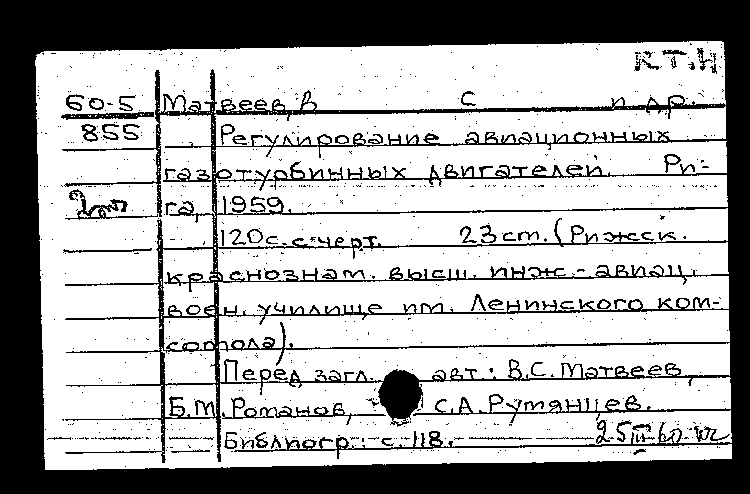 К.Т.Н
60-5 Матвеев, В С и др.
855 Регулирование авиационных
газотурбинных двигателей. Ри-
га, 1959.
120с. с черт. 23 cm. (Рижск.
краснознам. высш. инж.-авиац.
воен. училище им. Ленинского ком-
сомола).
Перед загл. авт.: В.С. Матвеев,
Б.М. Романов, С.А. Румянцев.
Библиогр.: с. 118. 25 III 60